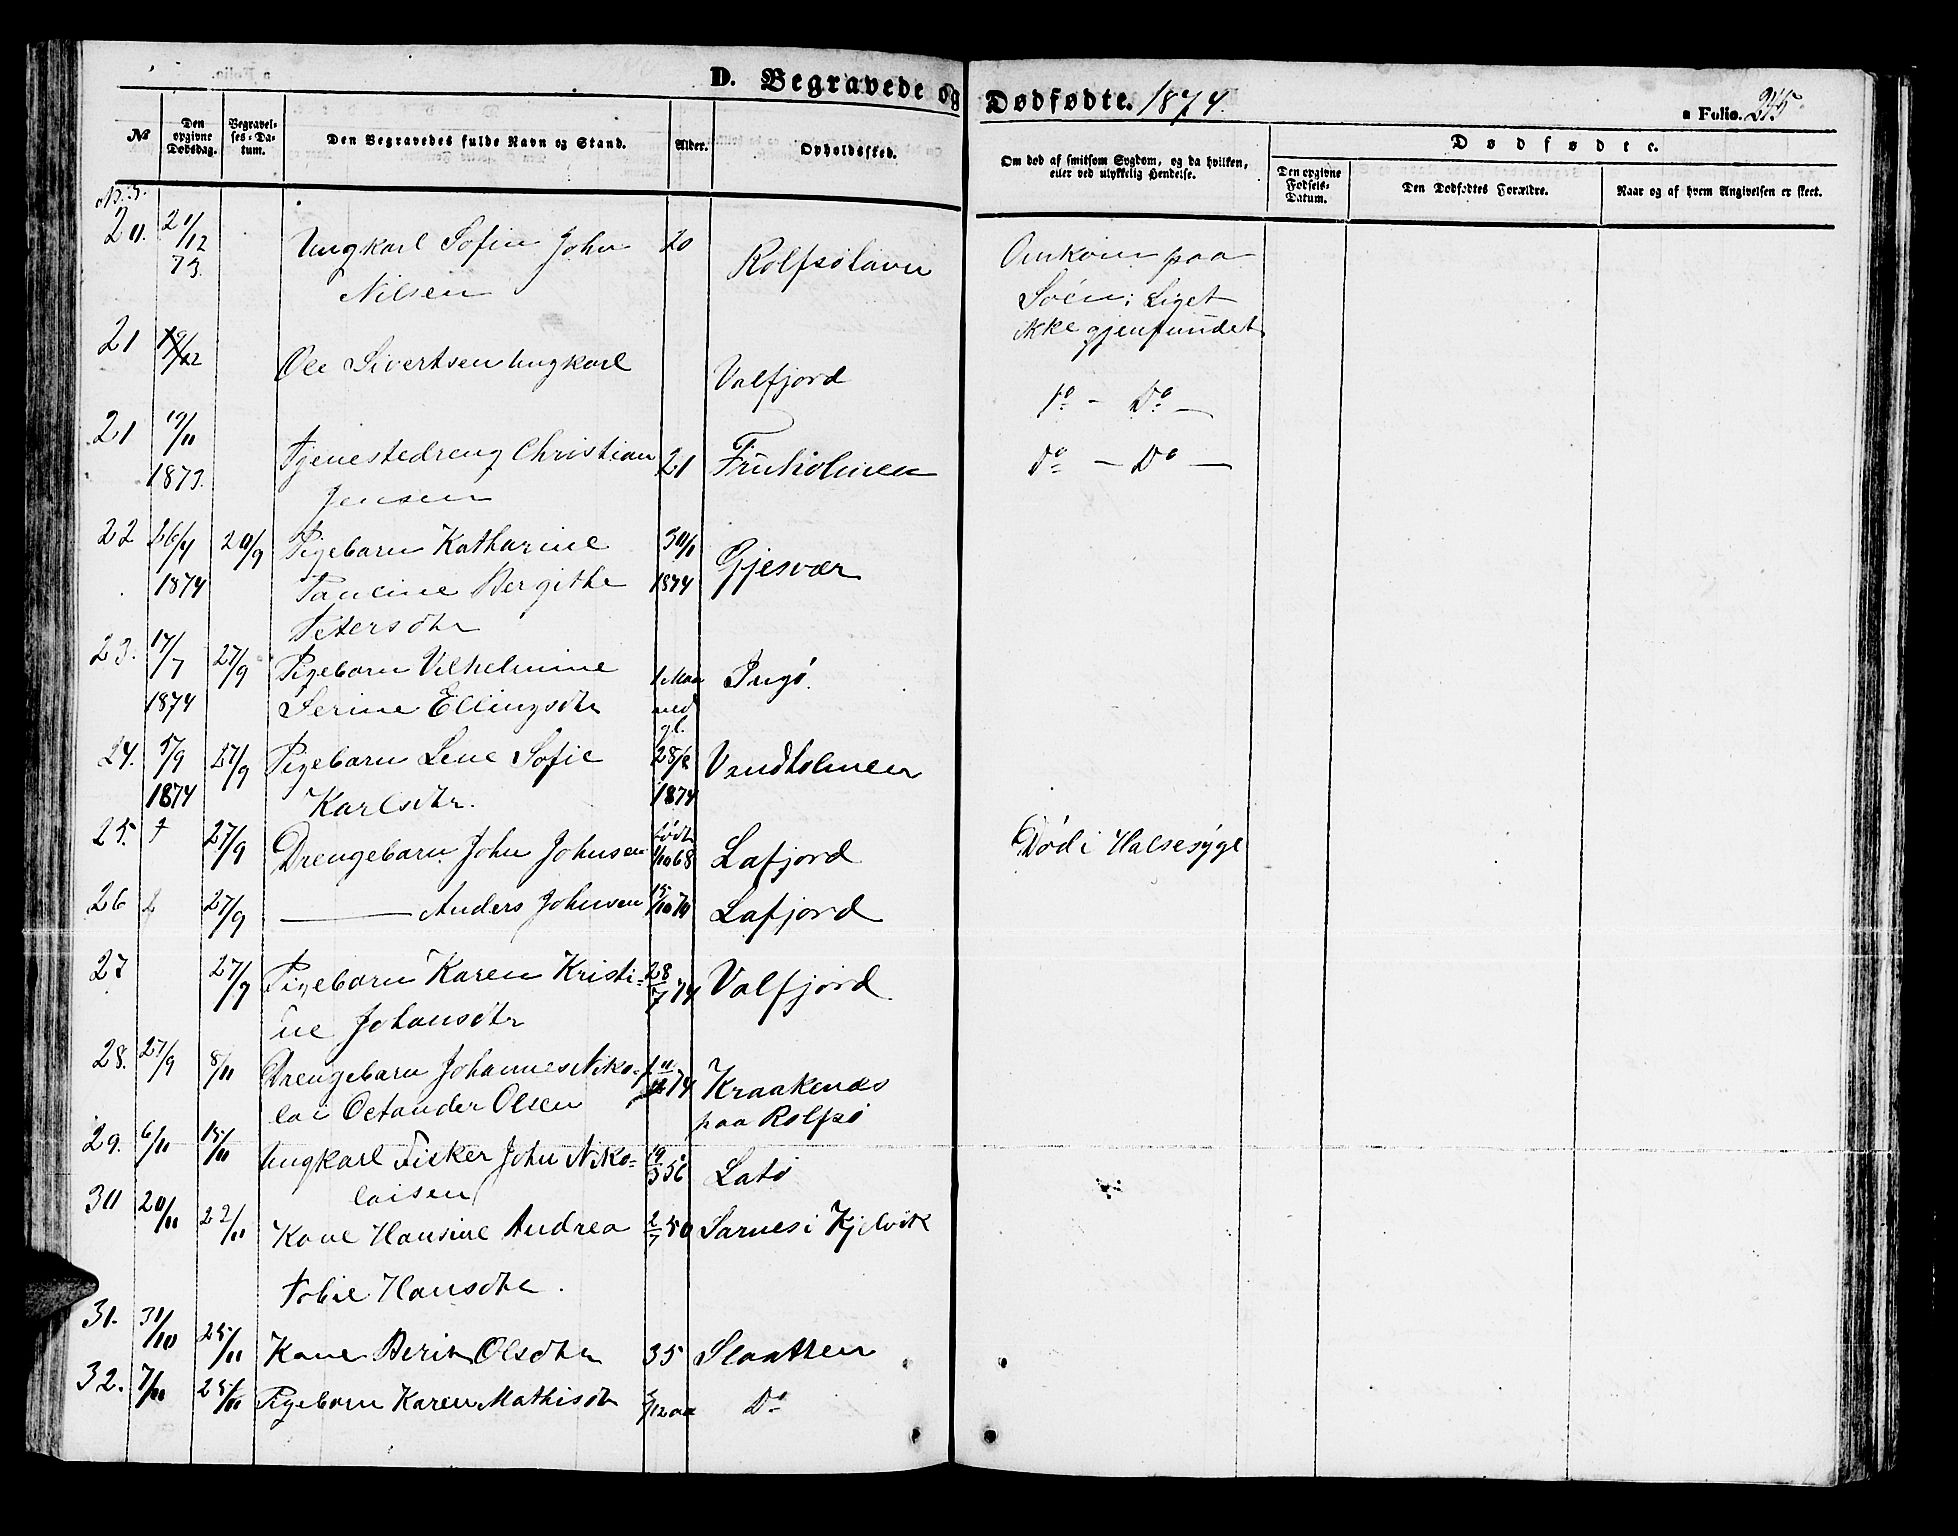 D. Begravede og Dødfødte. 1874.
a Folio.
№
Den opgivne Dødsdag.
Begravelses-Datum.
Den Begravedes fulde Navn og Stand.
Alder.
Opholdssted.
Om død af smitsom Sygdom, og da hvilken,
eller ved ulykkelig Hendelse.
Dødfødte.
Den opgivne Fødsels-Datum.
Den Dødfødtes Forældre.
Naar og af hvem Angivelsen er skeet.
20. 21/12 Ungkarl Sofin John 20 Rolfsøhavn Omkom paa
73. Nilsen Søen; Liget
ikke gjenfundet
21 /12 Ole Sivertsen Ungkarl Valfjord Do - Do -
21 19/11 Tjenestedreng Christian 21 Fruholmen Do - Do -
1873. Jensen
22 26/4 20/9 Pigebarn Katharine 30/1 Gjesvær
1874 Pauline Bergithe 1874
Petersdtr
23. 17/7 27/9 Pigebarn Vilhelmine 1 Maa Ingø.
1874 Serine Ellingsdtr ned
gl.
24. 5/9 27/9 Pigebarn Lene Sofie 28/8 Vandholmen
1874 Karlsdtr. 1874
25. 27/9 Drengebarn John Johnsen født /10 68 Lafjord Død i Halsesyge
26 27/9 — Anders Johnsen 15/10 70 Lafjord
27 27/9 Pigebarn Karen Kristi- 28/7 74 Valfjord
ne Johansdtr
28. 27/9 8/11 Drengebarn Johannes Niko- 74 Kraakenæs
lai Octander Olsen paa Rolfsø
29. 6/11 15/11 Ungkarl Fisker John Niko- 19/3 56 Latø
laisen
30 20/11 22/11 Kone Hansine Andrea 2/7 50 Sarnes i Kjelvik
Tobie Hansdtr.
31. 31/10 25/11 Kone Berit Olsdtr 35 Slaatten
32. 7/11 25/11 Pigebarn Karen Mathisdtr 5/12 aar Do